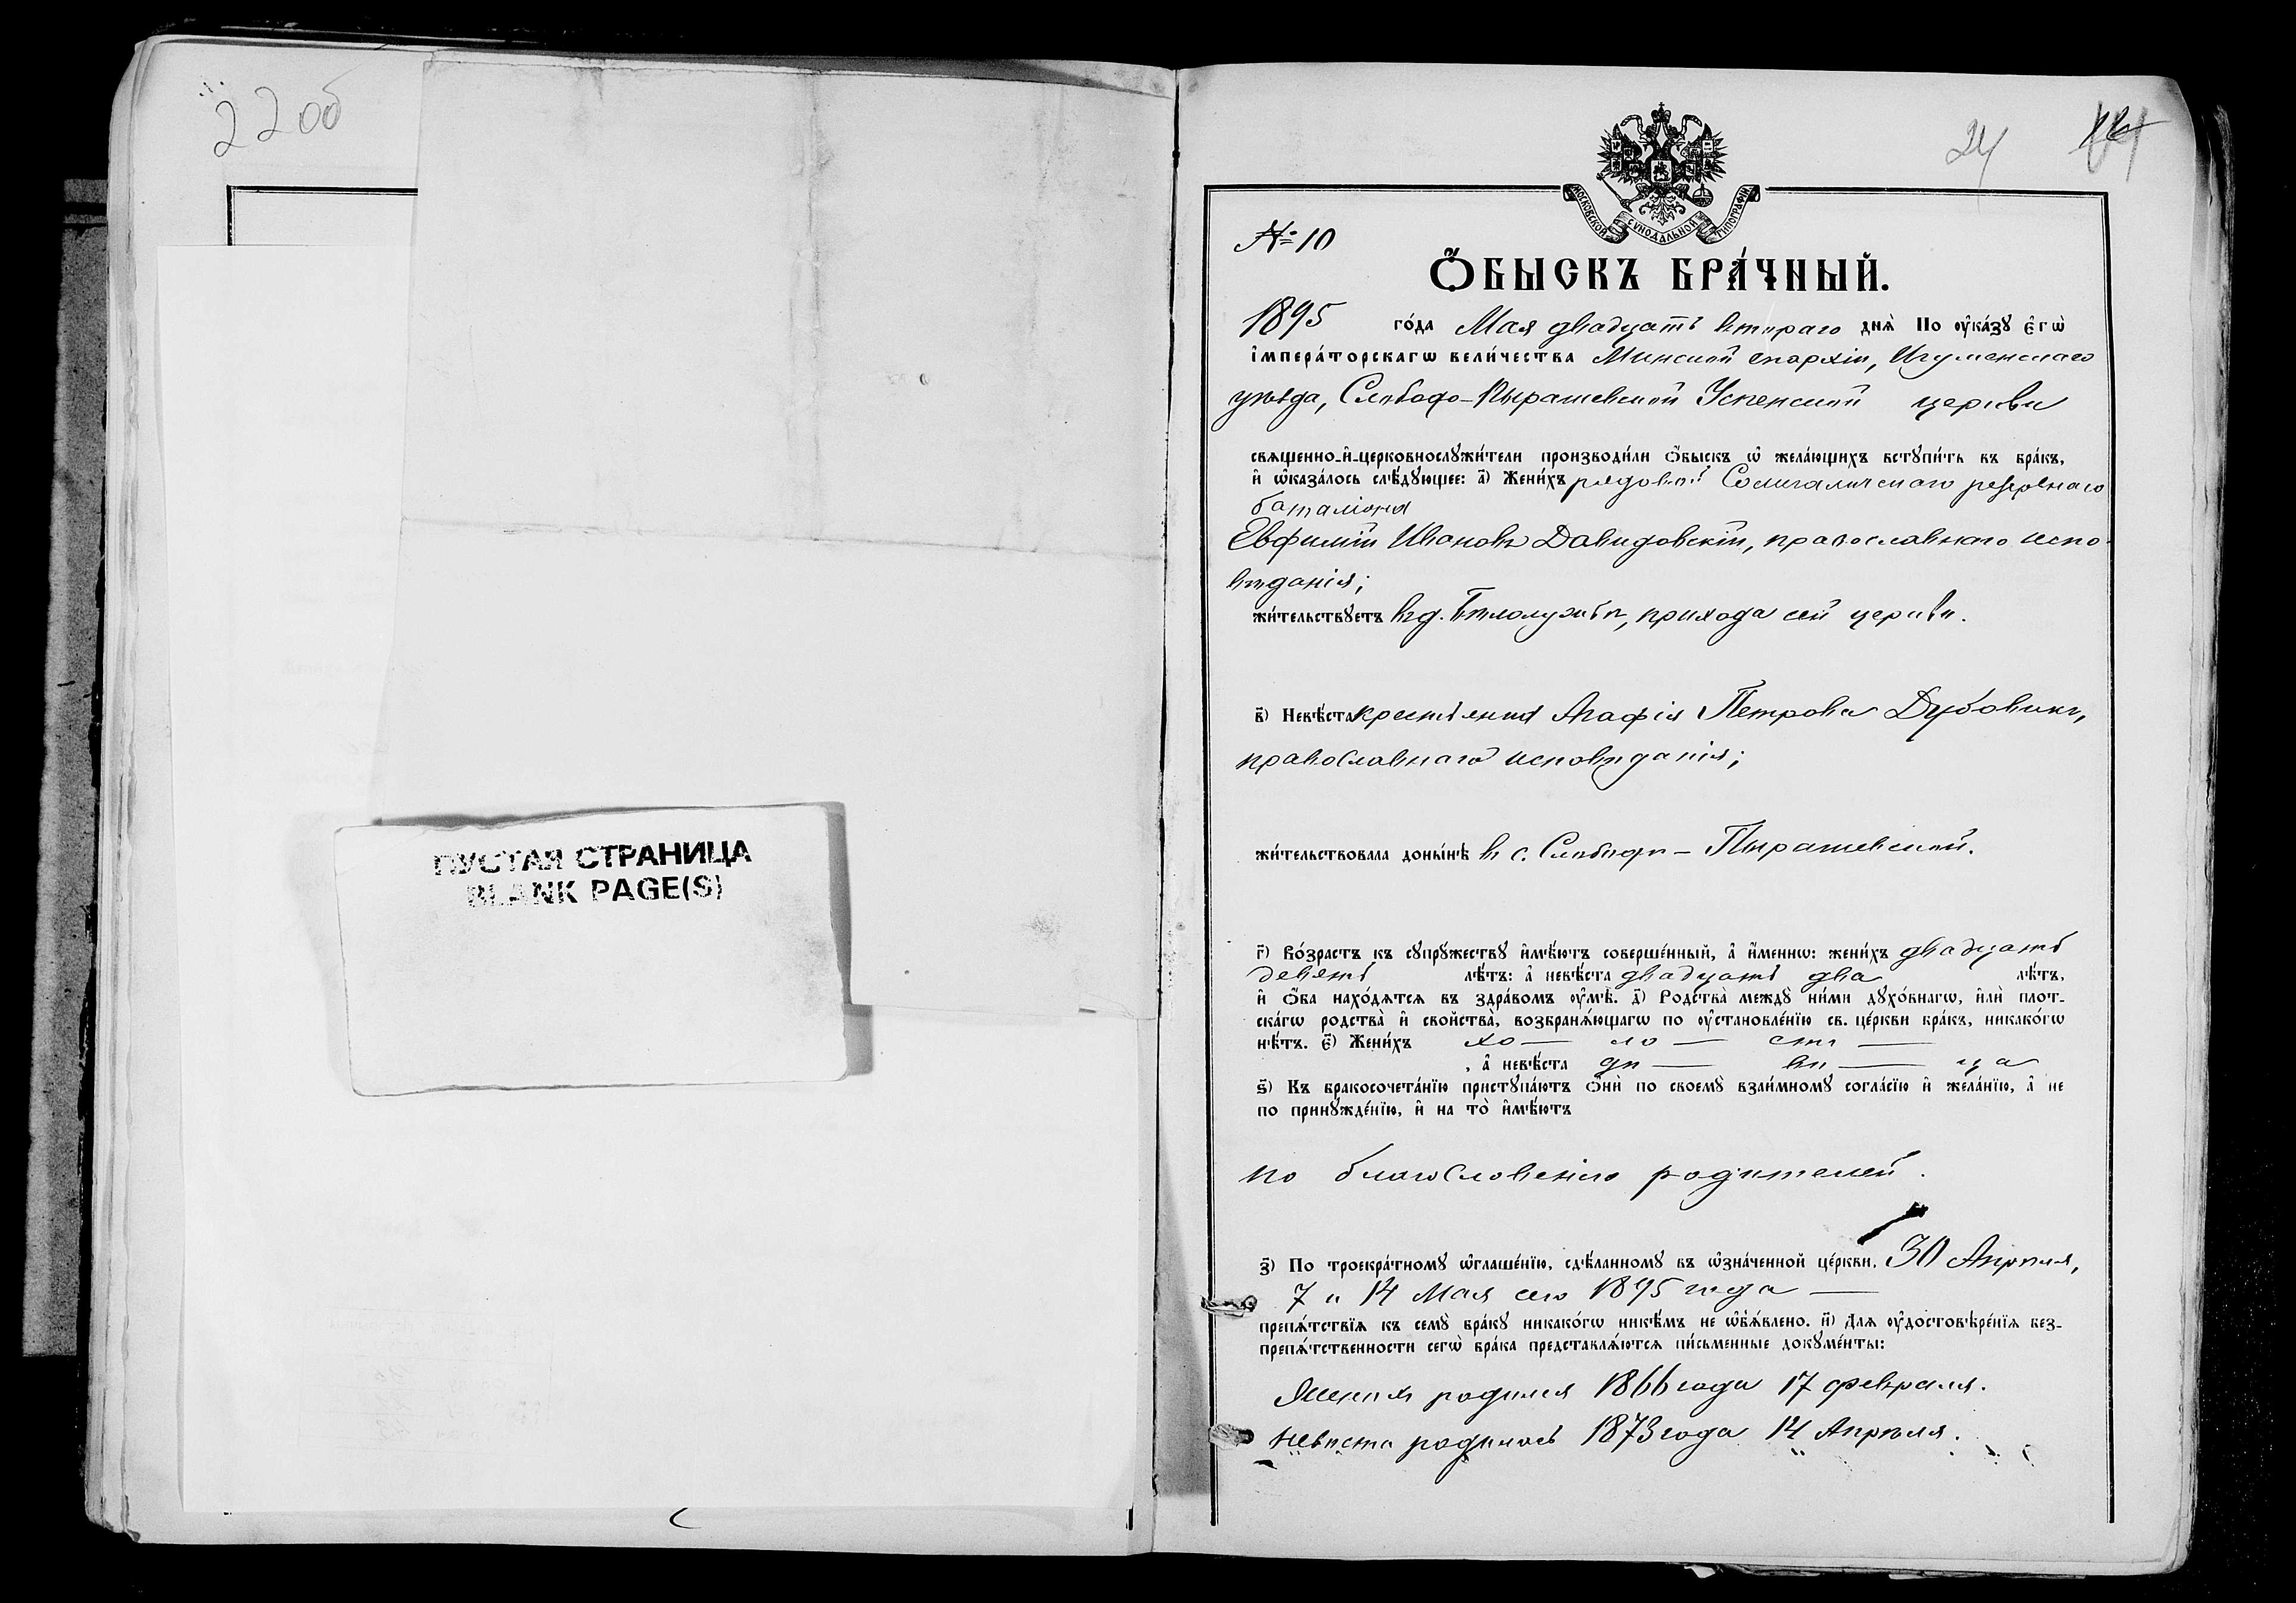 22 об
ПУСТАЯ СТРАНИЦА
BLANK PAGE(S)
24
МОСКОВСКОЙ СѴНОДАЛЬНОЙ ТИПОГРАФІИ
№ 10
Ѻ҆БЫСКЪ БРА́ЧНЫЙ.
1895 го́да Мая двадцать втораго днѧ̀ По ᲂу҆ка́зꙋ є҆гѡ̀
і҆мпера́торскагѡ вели́чества Минской епархіи, Игуменскаго
уѣзда, Слободо-Пырашевской Успенской церкви
свѧщенно-и҆-церковнослꙋжи́тели производи́ли ѻ҆́быскъ ѡ҆ жела́ющихъ встꙋпи́ть въ бра́къ,
и҆ ѡ҆каза́лось слѣ́дꙋющее: а҃) Жени́хъ рядовой Солигаличскаго резервнаго
баталіона
Евфимій Ивановъ Давидовскій, православнаго испо-
вѣданія;
жи́тельствꙋетъ въ д. Бѣлолужѣ, прихода сей церкви.
в҃) Невѣ́ста крестьянка Агафія Петрова Дубовикъ,
православнаго исповѣданія;
жи́тельствовала доны́нѣ въ с. Слободѣ-Пырашевской.
г҃) Во́зрастъ къ сꙋпрꙋ́жествꙋ и҆мѣ́ютъ соверше́нный, а҆ и҆́меннѡ: жени́хъ двадцать
девять лѣ́тъ: а҆ невѣ́ста двадцать два лѣ́тъ,
и҆ ѻ҆́ба нахо́дѧтсѧ въ здра́вомъ ᲂу҆мѣ̀. д҃) Родства̀ междꙋ̀ ни́ми дꙋхо́внагѡ, и҆лѝ плот-
ска́гѡ родства̀ и҆ свойства̀, возбранѧ́ющагѡ по ᲂу҆становле́нїю св. це́ркви бра́къ, никако́гѡ
нѣ́тъ. є҃) Жени́хъ хо — ло — стъ —
, а҆ невѣ́ста дѣ — ви — ца
ѕ҃) Къ бракосочета́нїю пристꙋпа́ютъ ѻ҆нѝ по своемꙋ̀ взаи́мномꙋ согла́сїю и҆ жела́нїю, а҆ не
по принꙋжде́нїю, и҆ на то̀ и҆мѣ́ютъ
по благословенію родителей.
з҃) По троекра́тномꙋ ѡ҆глаше́нїю, сдѣ́ланномꙋ въ ѡ҆зна́ченной це́ркви, 30 Апрѣля,
7 и 14 Мая сего 1895 года —
препѧ́тствїѧ къ семꙋ̀ бра́кꙋ никако́гѡ никѣ́мъ не ѡ҆б̾ѧ́влено. и҃) Длѧ ᲂу҆достовѣре́нїѧ без-
препѧ́тственности сегѡ̀ бра́ка представлѧ́ютсѧ пи́сьменные докꙋме́нты:
Женихъ родился 1866 года 17 февраля.
Невѣста родилась 1873 года 14 Апрѣля.